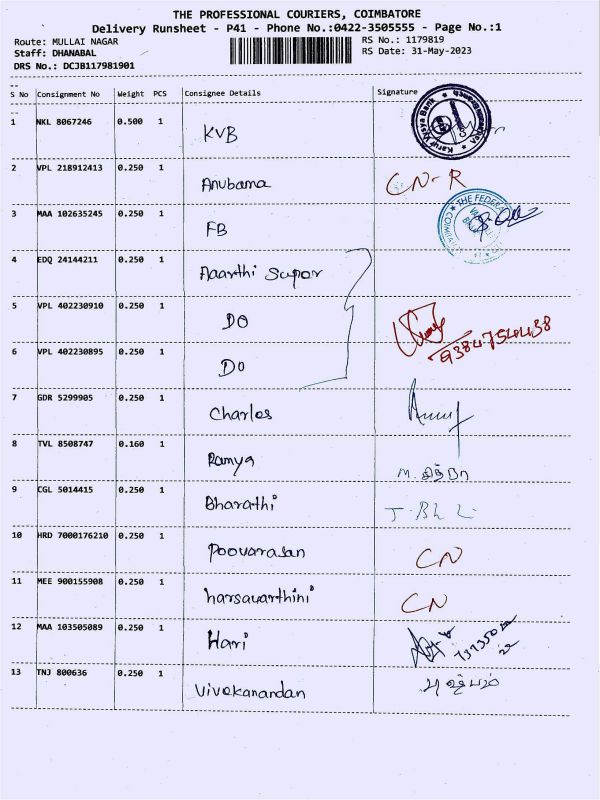 THE PROFESSIONAL COURIERS, COIMBATORE
Delivery Runsheet - P41 - Phone No.:0422-3505555 - Page No.:1
Route: MULLAI NAGAR RS No.: 1179819
Staff: DHANABAL RS Date: 31-May-2023
DRS No.: DCJB117981901
S No Consignment No Weight PCS Consignee Details Signature
1 NKL 8067246 0.500 1 KVB Karur Vysya Bank
2 VPL 218912413 0.250 1 Anubama CN-R
3 MAA 102635245 0.250 1 FB THE FEDERAL
4 EDQ 24144211 0.250 1 Aaarthi Supor
5 VPL 402230910 0.250 1 DO
6 VPL 402230895 0.250 1 DO
7 GDR 5299905 0.250 1 Charles
8 TVL 8508747 0.160 1 Ramya M. சித்ரா
9 CGL 5014415 0.250 1 Bharathi
10 HRD 7000176210 0.250 1 Poovarasan CN
11 MEE 900155908 0.250 1 harsavarthini CN
12 MAA 103505089 0.250 1 Hari
13 TNJ 800636 0.250 1 Vivekanandan